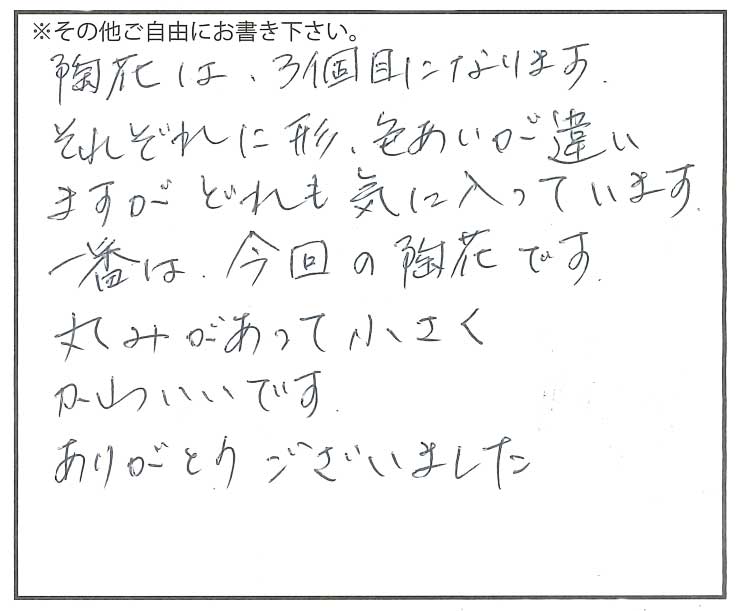 ※その他ご自由にお書き下さい。
陶花は、3個目になります。
それぞれに形、色あいが違い
ますがどれも気に入っています。
一番は、今回の陶花です。
丸みがあって小さく
かわいいです。
ありがとうございました